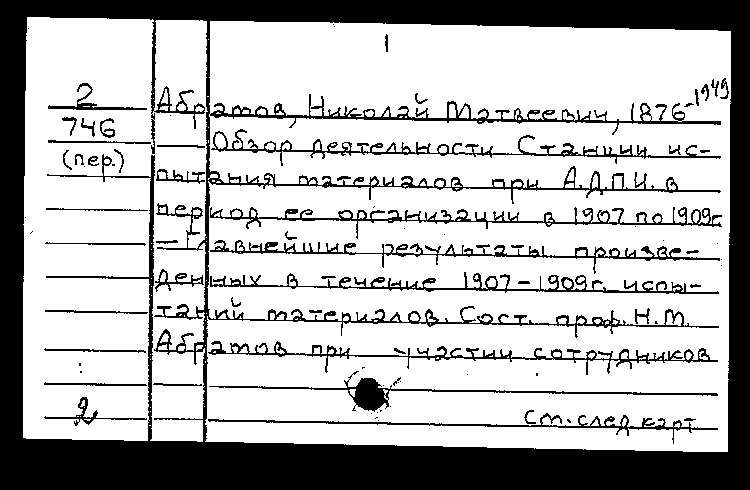 1
2
746
(пер.)
Абратов, Николай Матвеевич, 1876-1949
Обзор деятельности Станции ис-
пытания материалов при А.Д.П.И. в
период ее организации в 1907 по 1909г.
— Главнейшие результаты произве-
денных в течение 1907-1909г. испы-
таний материалов. Сост. проф. Н.М.
Абратов при участии сотрудников
2
См. след карт